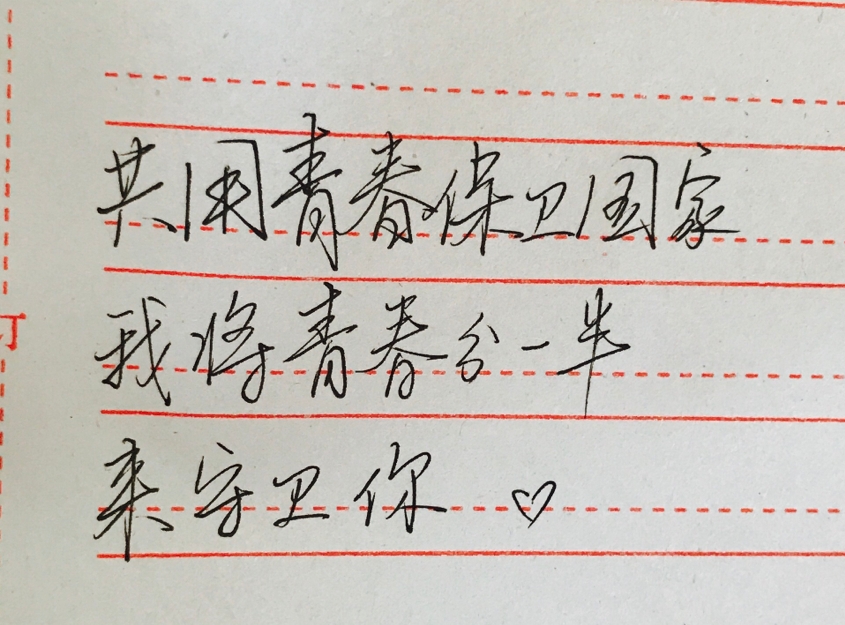 共用青春保卫国家
我将青春分一半
来守卫你 ♡
订